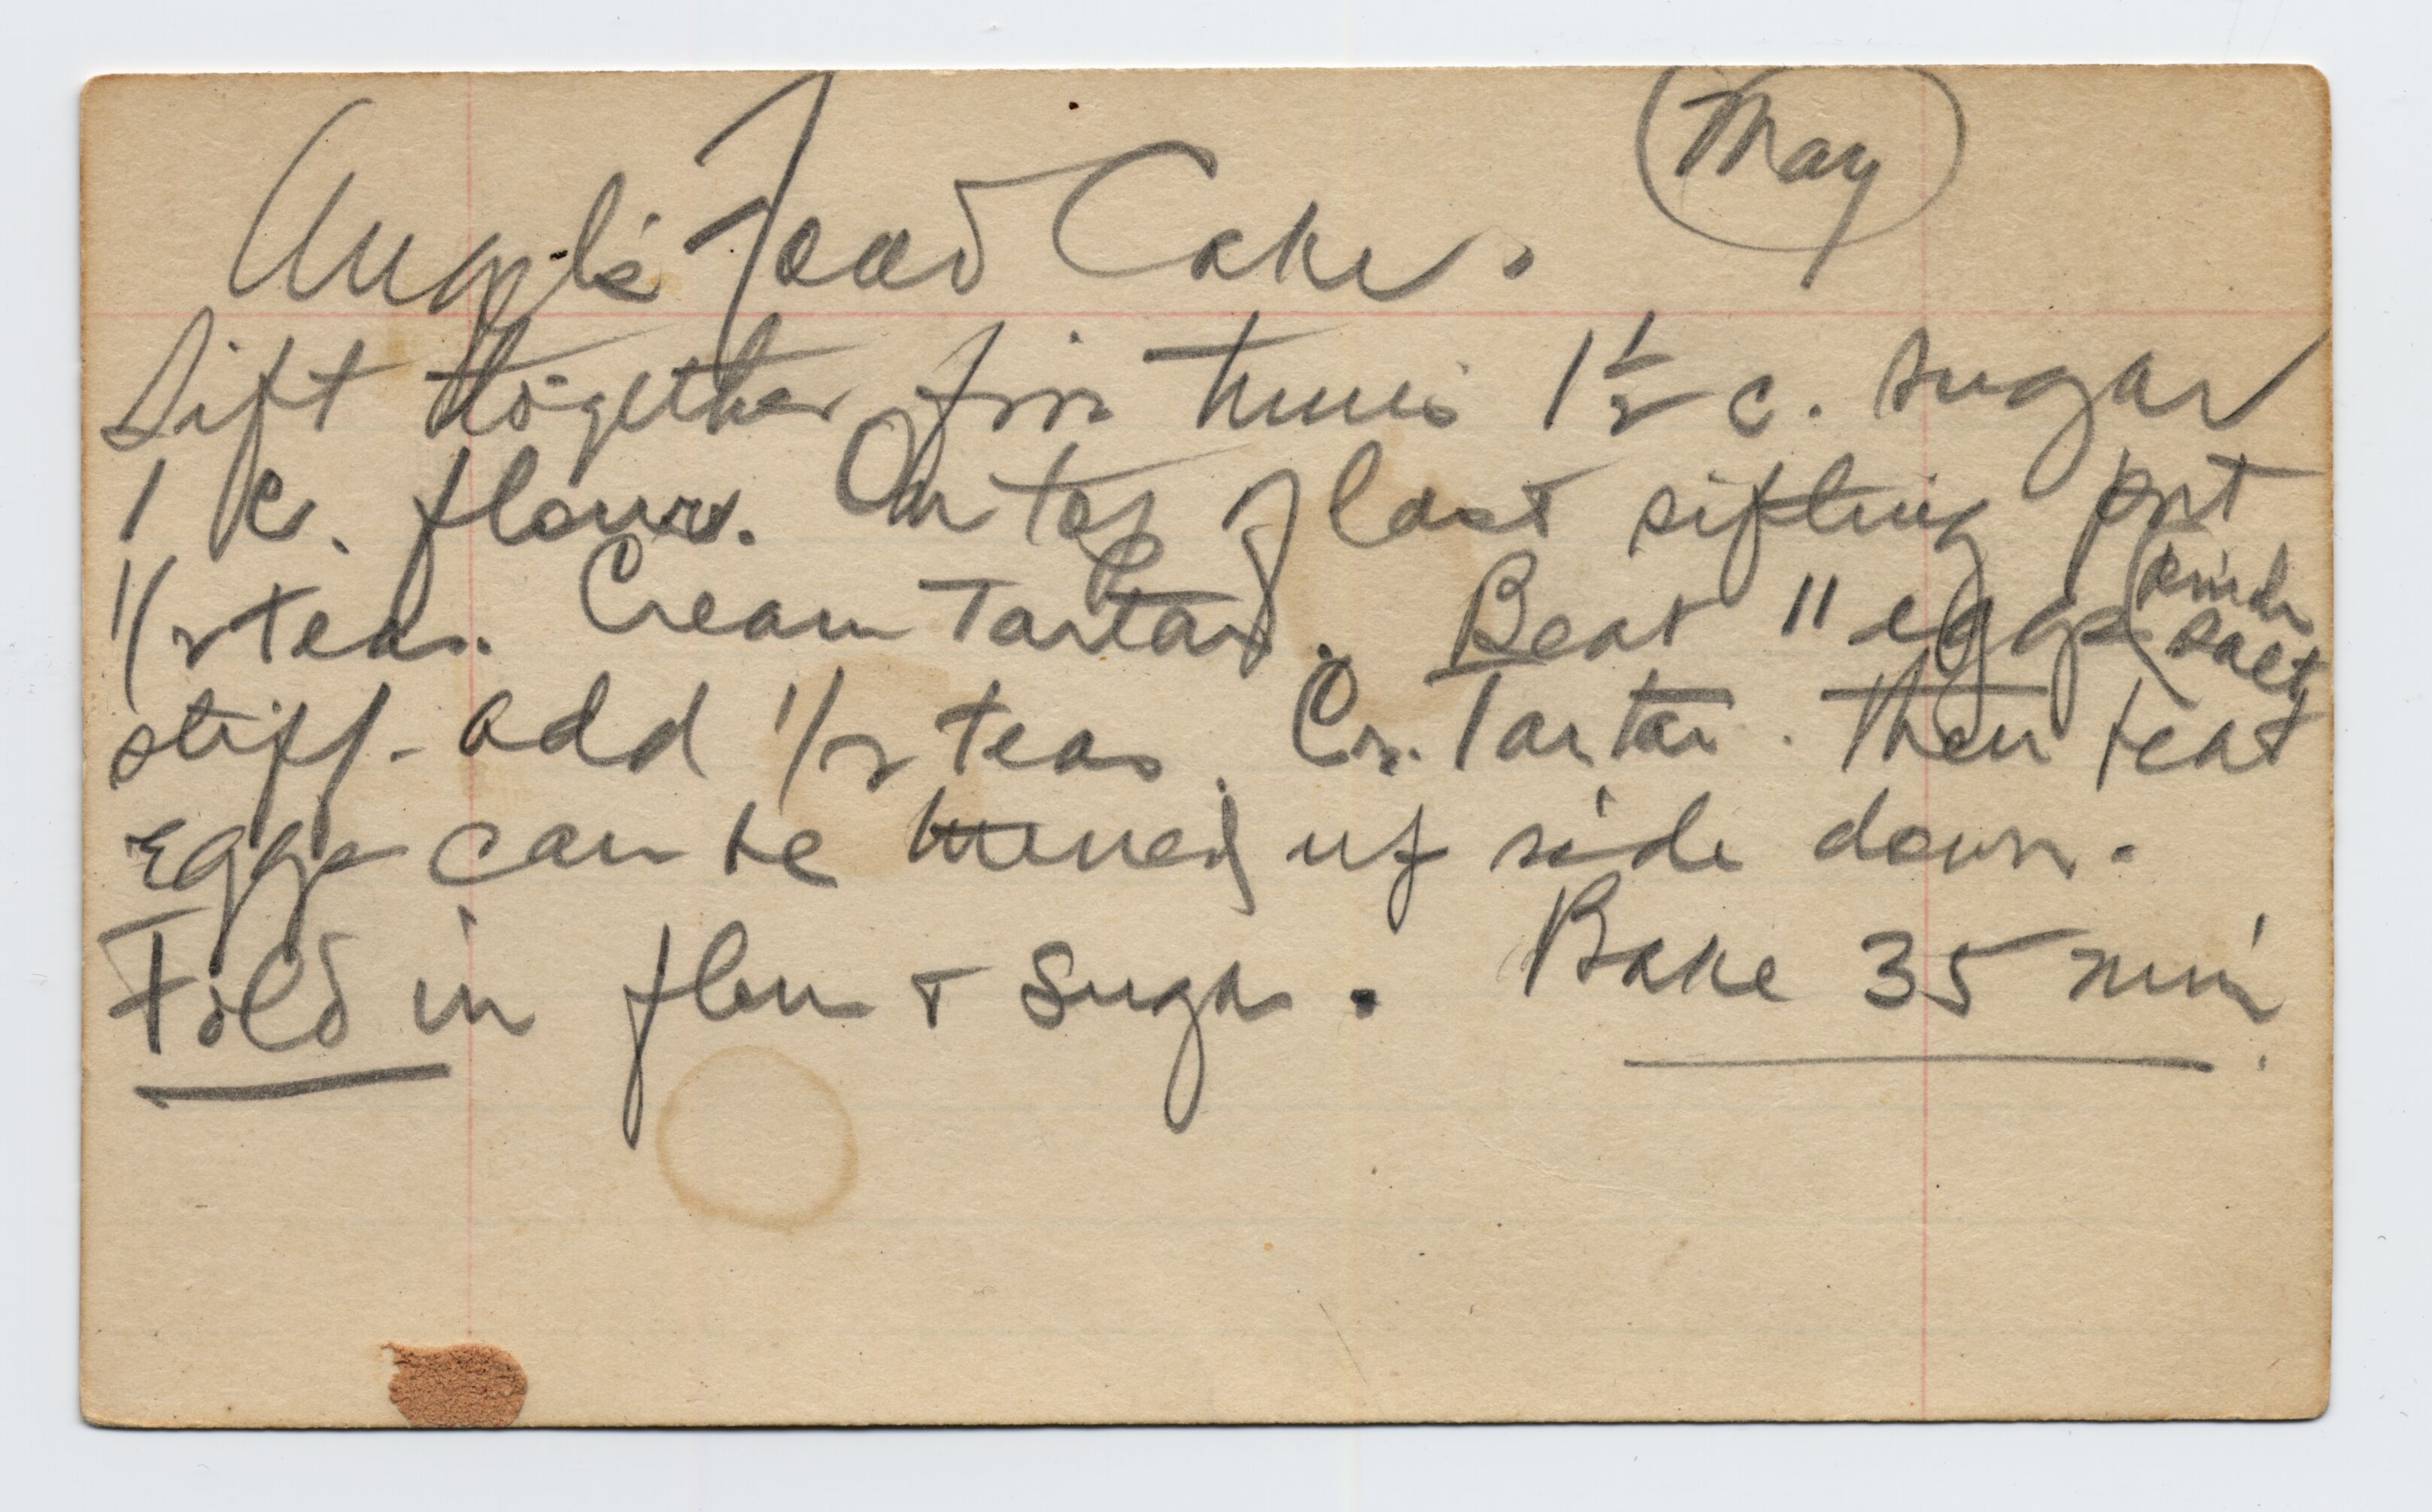 May
Angel's Food Cake.
Sift together five times 1 1/2 c. sugar
1 c. flour. On top of last sifting put
1/2 teas. Cream Tartar. Beat 11 eggs (pinch salt)
stiff - add 1/2 teas. Cr. Tartar. Then beat
Eggs can be turned up side down.
Fold in flour + Sugar. Bake 35 min.